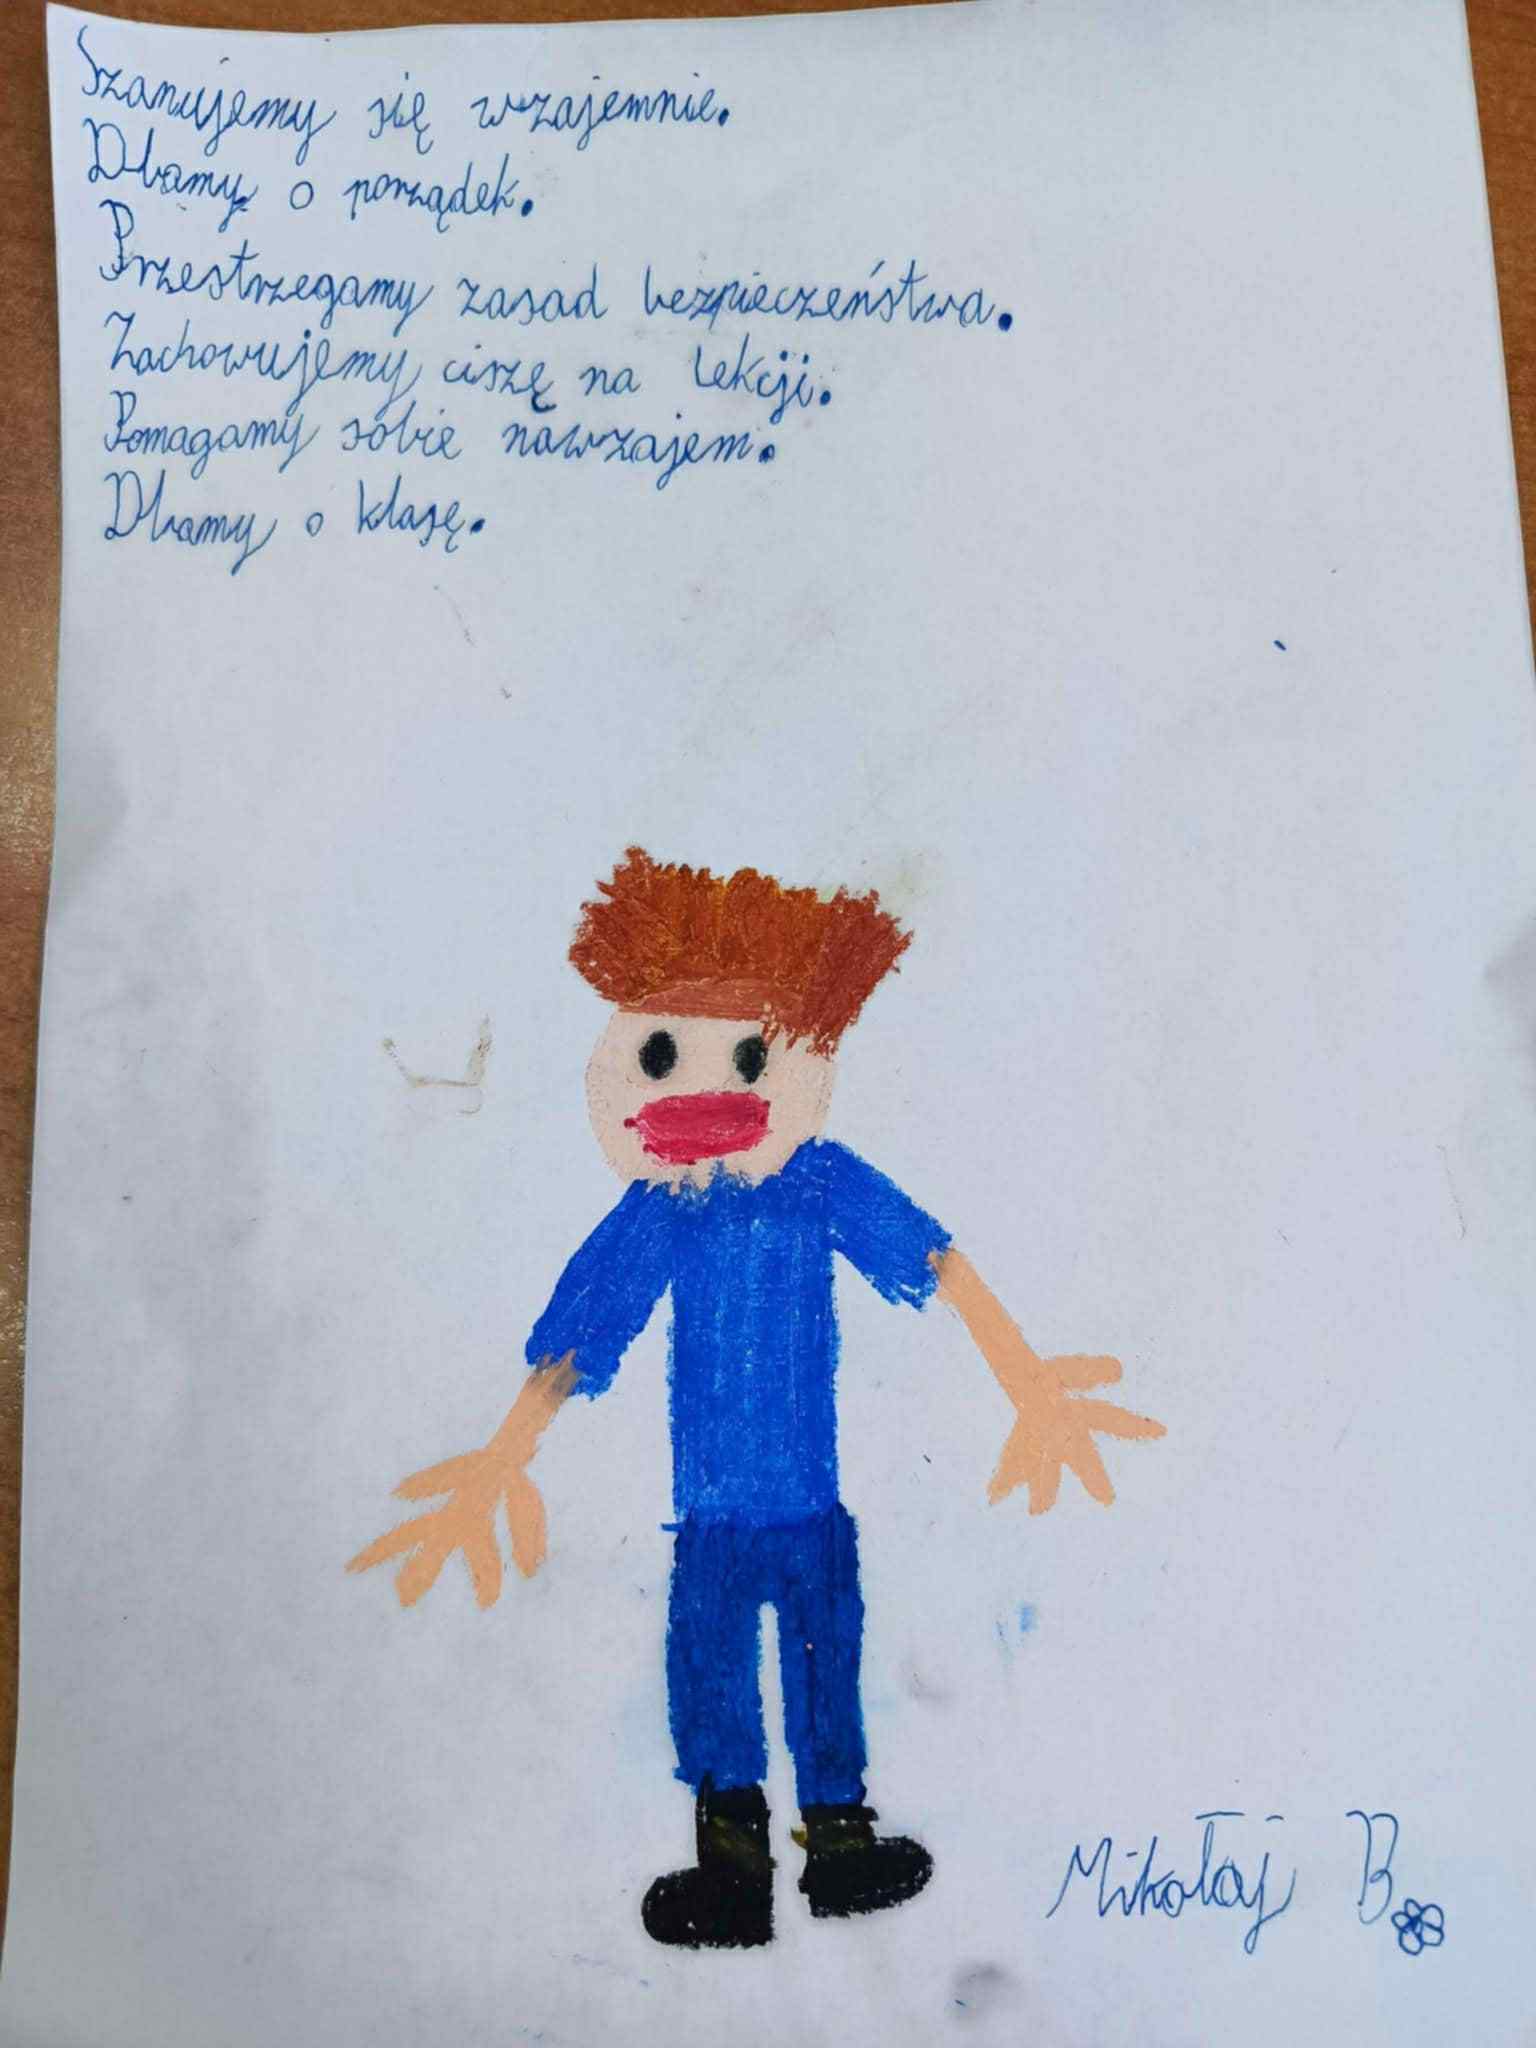 Szanujemy się wzajemnie.
Dbamy o porządek.
Przestrzegamy zasad bezpieczeństwa.
Zachowujemy ciszę na lekcji.
Pomagamy sobie nawzajem.
Dbamy o klasę.
Mikołaj B.